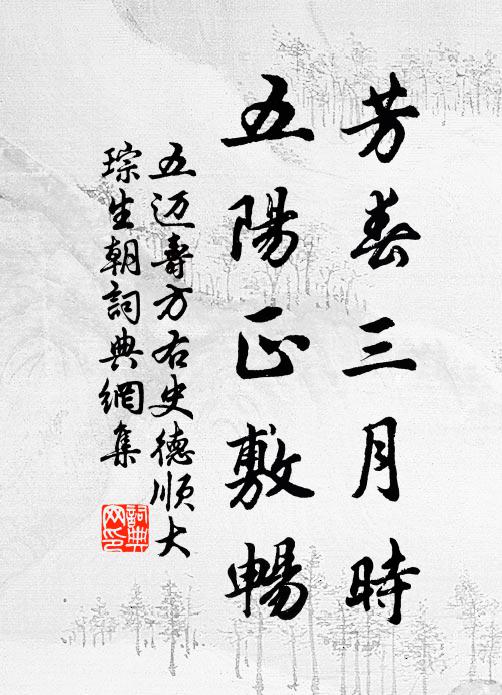 芳春三月時
五陽正敷暢
五迈壽方右史德順大
琮生朝詞典網集
詞典网印